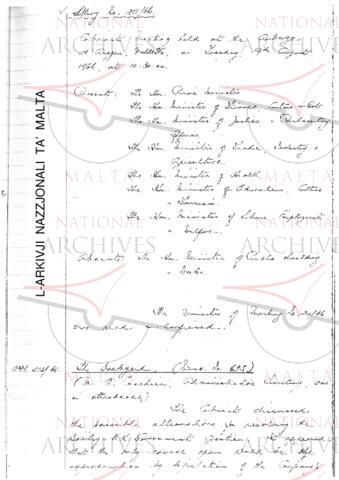 Sitting No. 25/66.
Cabinet meeting held at the Auberge
d'Aragon, Valletta, on Tuesday 9th August
1966, at 10.30 am.
Present: The Hon. Prime Minister
The Hon. Minister of Finance, Customs & Port
The Hon. Minister of Justice & Parliamentary
Affairs
The Hon. Minister of Trade, Industry &
Agriculture.
The Hon. Minister of Health.
The Hon. Minister of Education, Culture
& Tourism.
The Hon. Minister of Labour, Employment
& Welfare.
Absent: The Hon. Minister of Public Building
& Works.
The Minutes of Meeting No.
were read & confirmed.
The Dockyard (Memo. No. 695)
Administrative Secretary, was
in attendance)
The Cabinet discussed
the possible alternatives for resolving the
Bailey / U.K. Government position. It agreed
that the only course open would be the
expropriation by legislation of the Company's
L-ARKIVJI NAZZJONALI TA' MALTA
NATIONAL
ARCHIVES
NATIONAL
ARCHIVES
NATIONAL
ARCHIVES
NATIONAL
ARCHIVES
NATIONAL
ARCHIVES
NATIONAL
ARCHIVES